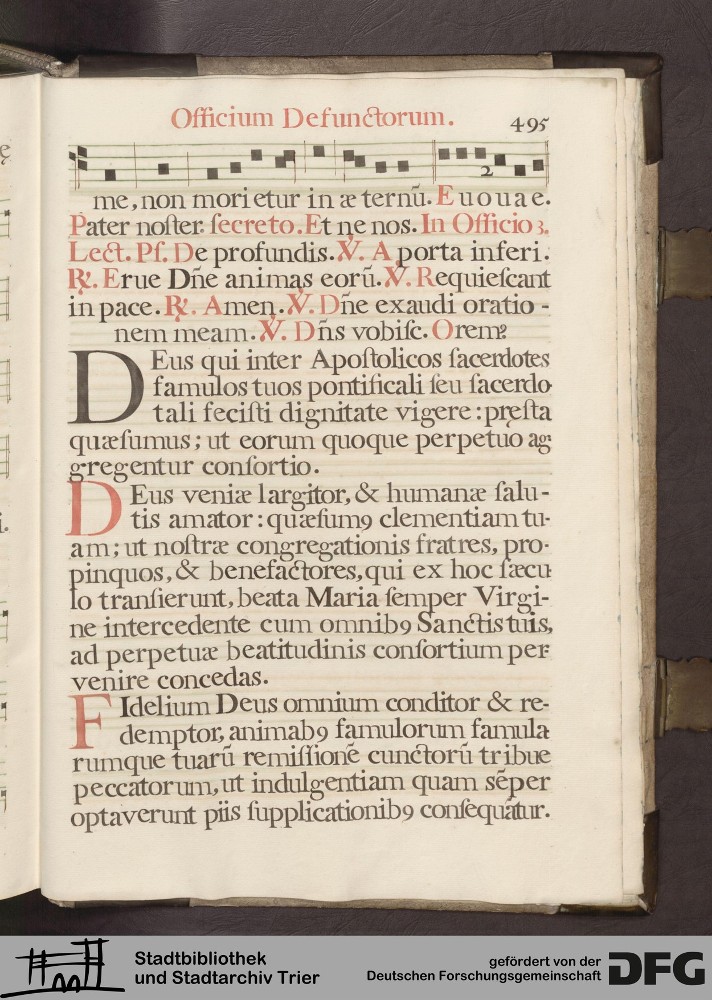 Officium Defunctorum.
495
2
me, non morietur in æternū. Euouae.
Pater noſter. ſecreto. Et ne nos. In Officio 3.
Lect. Pſ. De profundis. ℣. A porta inferi.
℟. Erue Dn̄e animas eorū. ℣. Requieſcant
in pace. ℟. Amen. ℣. Dn̄e exaudi oratio-
nem meam. ℣. Dn̄s vobiſc. Orem9
DEus qui inter Apoſtolicos ſacerdotes
famulos tuos pontificali ſeu ſacerdo
tali feciſti dignitate vigere: pręſta
quæſumus; ut eorum quoque perpetuo ag
gregentur conſortio.
DEus veniæ largitor, & humanæ ſalu-
tis amator: quæſum9 clementiam tu-
am; ut noſtræ congregationis fratres, pro-
pinquos, & benefactores, qui ex hoc ſæcu
lo tranſierunt, beata Maria ſemper Virgi-
ne intercedente cum omnib9 Sanctis tuis,
ad perpetuæ beatitudinis conſortium per
venire concedas.
FIdelium Deus omnium conditor & re-
demptor, animab9 famulorum famula
rumque tuarū remiſſionē cunctorū tribue
peccatorum, ut indulgentiam quam sēper
optaverunt piis ſupplicationib9 conſequātur.
Stadtbibliothek
und Stadtarchiv Trier
gefördert von der
Deutschen Forschungsgemeinschaft
DFG